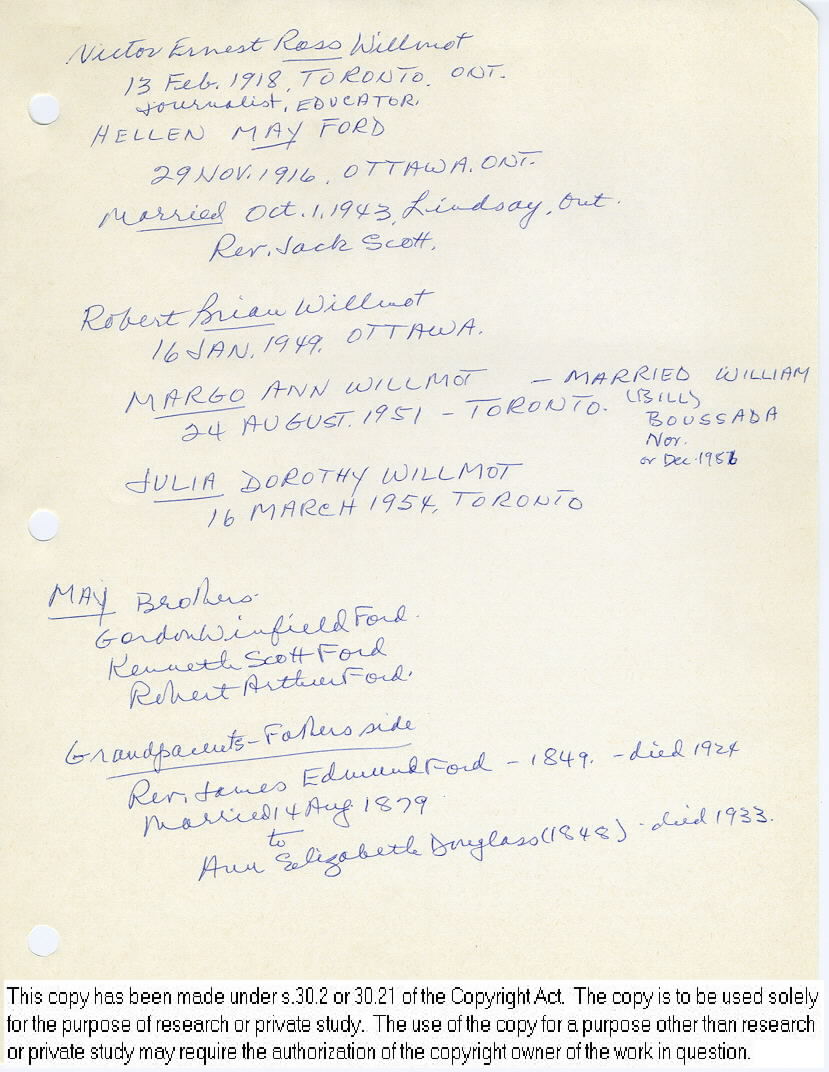 Victor Ernest Ross Willmot
13 Feb. 1918, TORONTO, ONT.
Journalist, EDUCATOR.
HELLEN MAY FORD
29 NOV. 1916, OTTAWA. ONT.
Married Oct. 1. 1943, Lindsay, Ont.
Rev. Jack Scott.
Robert Brian Willmot
16 JAN. 1949. OTTAWA.
MARGO ANN WILLMOT – MARRIED WILLIAM
24 AUGUST. 1951 – TORONTO. (BILL)
BOUSSADA
Nov.
or Dec. 1986
JULIA DOROTHY WILLMOT
16 MARCH 1954, TORONTO
MAY Brothers
Gordon Winfield Ford.
Kenneth Scott Ford
Robert Arthur Ford.
Grandparents – Fathers side
Rev. James Edmund Ford – 1849. – died 1924
Married 14 Aug. 1879
to
Ann Elizabeth Douglass (1848) – died 1933.
This copy has been made under s.30.2 or 30.21 of the Copyright Act. The copy is to be used solely
for the purpose of research or private study. The use of the copy for a purpose other than research
or private study may require the authorization of the copyright owner of the work in question.